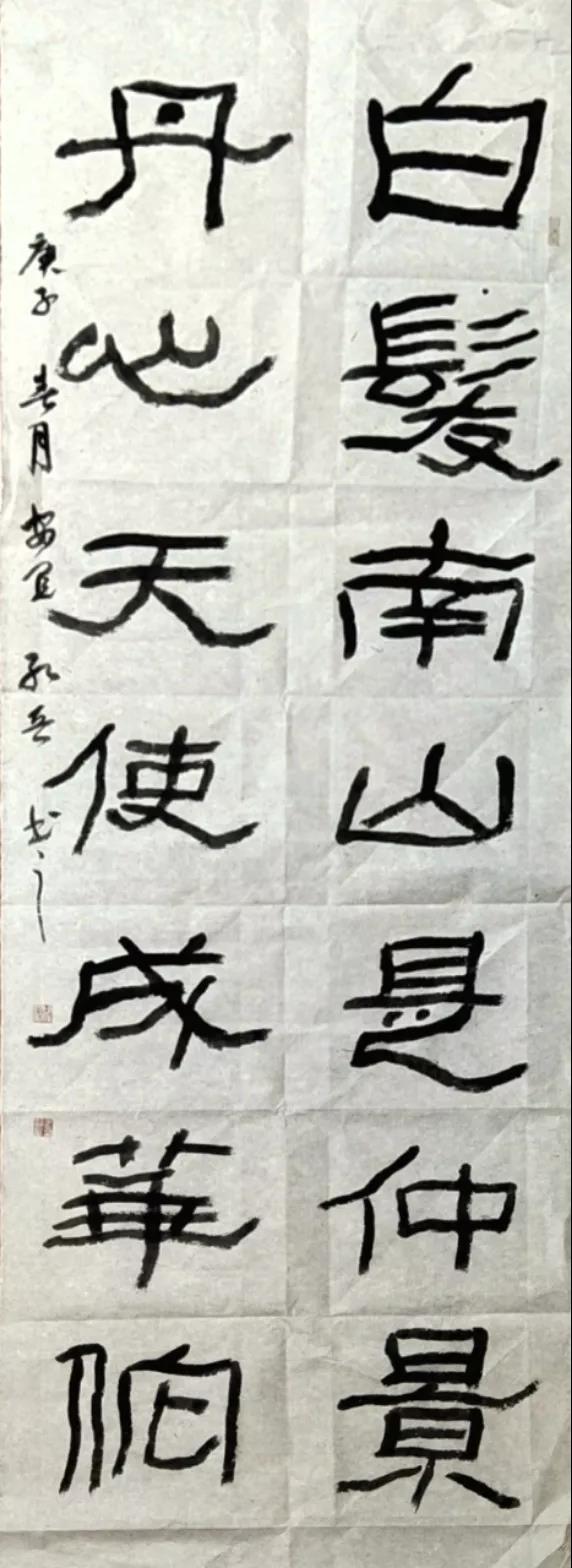 白髮南山是仲景
丹心天使成華佗
庚子 春月 安宜 书